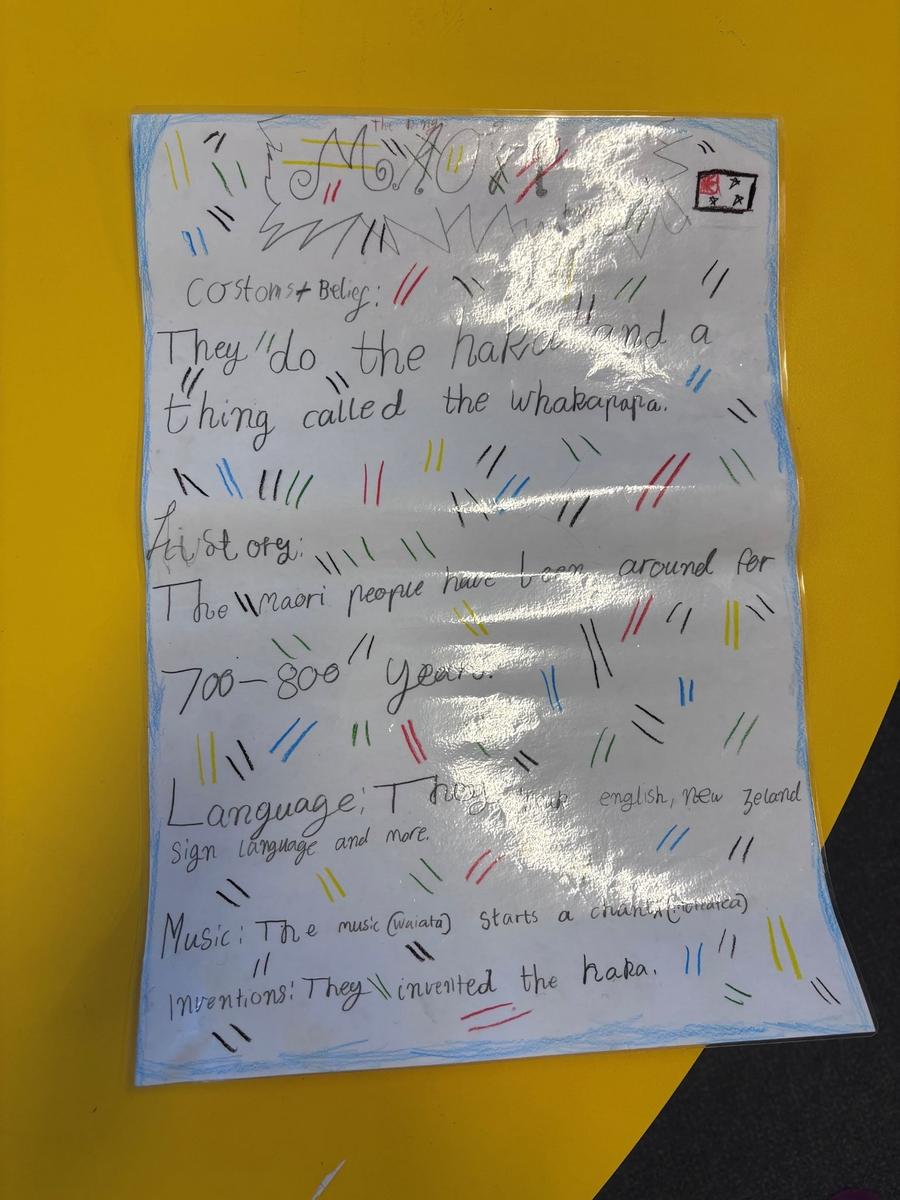 MAORI
Costoms + Belief:
They do the haka and a
thing called the whakapapa.
History:
The maori people have been around for
700-800 years.
Language: They speak english, new zeland
sign language and more.
Music: The music (waiata) starts a chant
Inventions: They invented the haka.